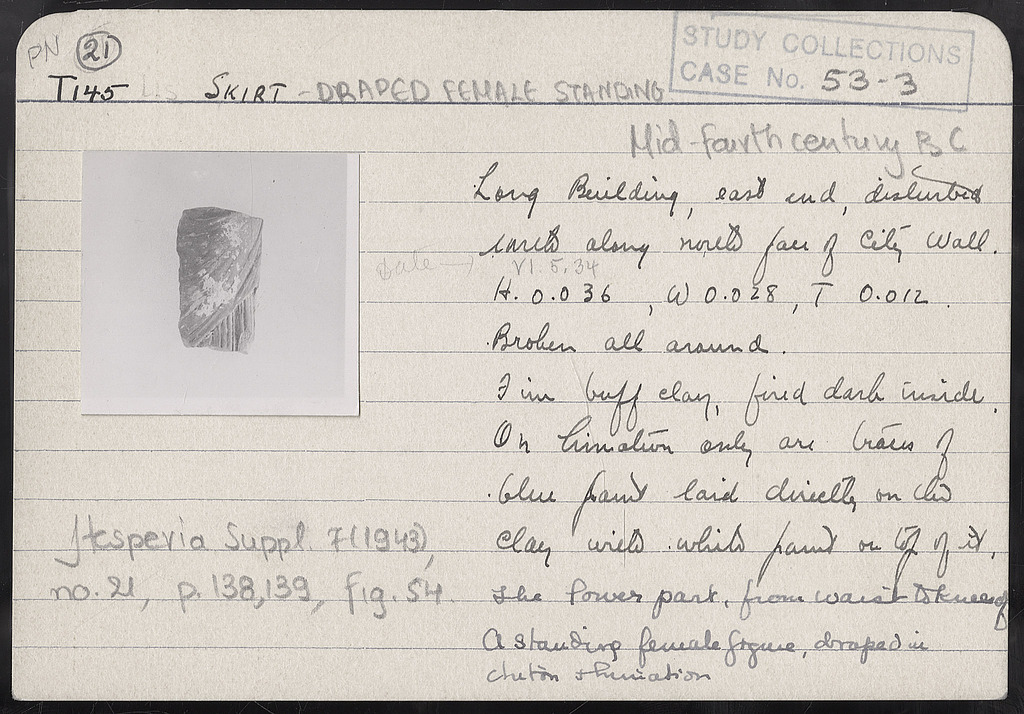 PN 21
STUDY COLLECTIONS
CASE No. 53-3
T145 SKIRT - DRAPED FEMALE STANDING
Mid-fourth century BC
Long Building, east end, disturbed
earth along north face of City Wall.
date → VI. 5. 34
H. 0.036, W 0.028, T 0.012.
Broken all around.
Fine buff clay, fired dark inside.
On himation only are traces of
blue paint laid directly on the
clay with white paint on top of it.
Hesperia Suppl. 7 (1943),
no. 21, p. 138,139, fig. 54.
The lower part, from waist to knees of
A standing female figure, draped in
chiton + himation